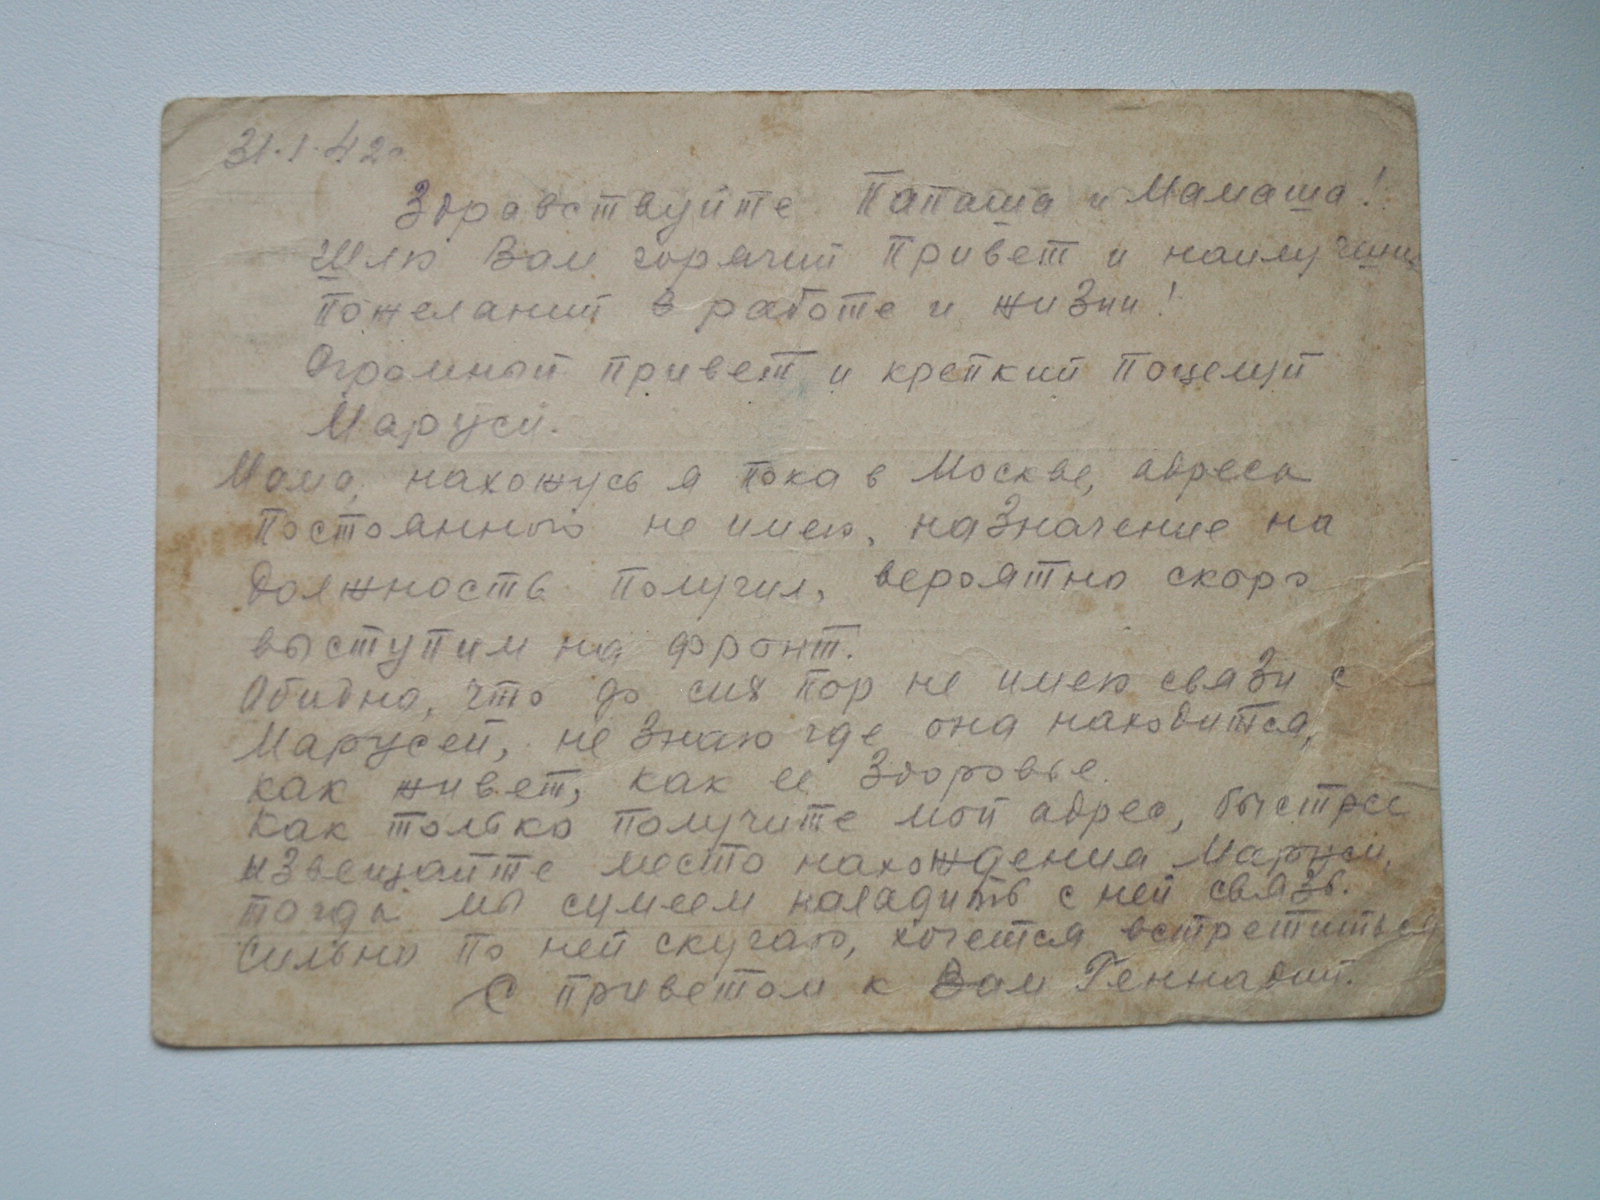 31.1.42г.
Здравствуйте Папаша и Мамаша!
Шлю Вам горячий привет и наилучших
пожеланий в работе и жизни!
Огромный привет и крепкий поцелуй
Маруси.
Мама, нахожусь я пока в Москве, адреса
постоянного не имею, назначение на
должность получил, вероятно скоро
выступим на фронт.
Обидно, что до сих пор не имею связи с
Марусей, не знаю где она находится,
как живет, как ее здоровье.
Как только получите мой адрес, быстрей
извещайте место нахождения Маруси,
тогда мы сумеем наладить с ней связь.
Сильно по ней скучаю, хочется встретиться
С приветом к Вам Геннадий.